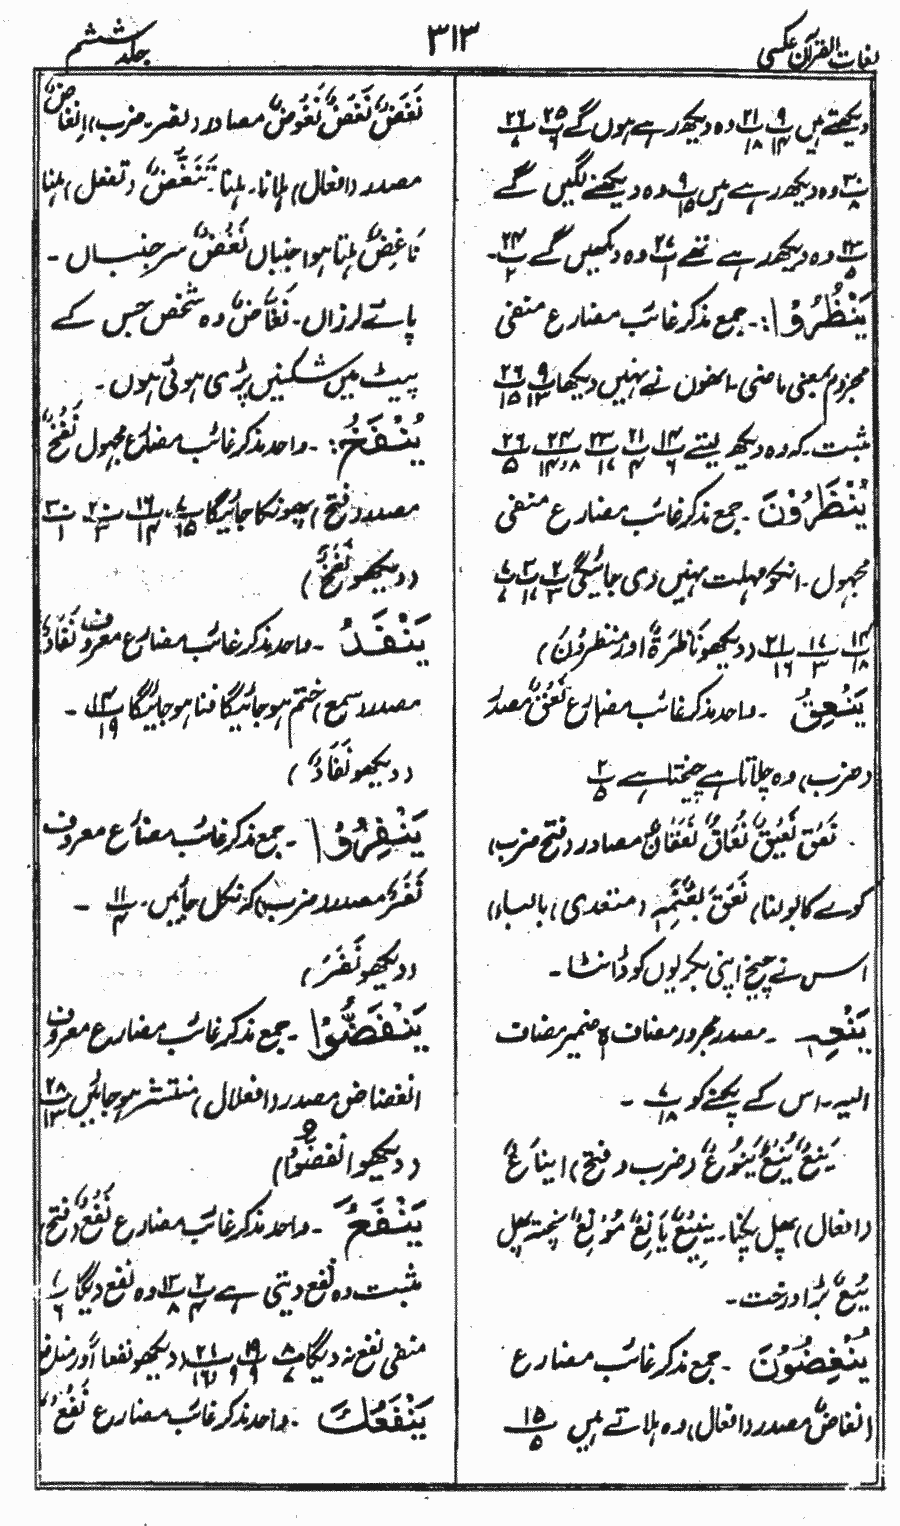 لغات القرآن عکسی
۳۱۳
جلد ششم
دیکھتے ہیں ۹/۱۴ ۲۱/۱۸ وہ دیکھ رہے ہوں گے ۲۵/۶ ۲۶/۷
۳۰/۸ وہ دیکھ رہے ہیں ۹/۱۵ وہ دیکھنے لگیں گے
۲۳/۵ وہ دیکھ رہے تھے ۲۷/۱ وہ دیکھیں گے ۲۴/۲-
یَنْظُرُوْا:- جمع مذکر غائب مضارع منفی
مجزوم بمعنی ماضی۔ انھوں نے نہیں دیکھا ۹/۱۳ ۲۶/۱۵
مثبت۔ کہ وہ دیکھ لیتے ۱۴/۶ ۲۱/۴ ۲۳/۱۷ ۲۴/۱۴،۸ ۲۶/۵
یُنْظَرُوْنَ۔ جمع مذکر غائب مضارع منفی
مجہول۔ انکو مہلت نہیں دی جائیگی ۲/۳ ۳/۱۷ ۷/۷
۱۴/۱۸ ۱۷/۳ ۲۱/۱۶ (دیکھو نَاظِرَۃٌ اور منتظرُونَ)
یَنْعِقُ۔ واحد مذکر غائب مضارع نَعْقٌ مصدر
(ضرب) وہ چلاتا ہے چیختا ہے ۲/۵
نَعْقٌ نَعِیْقٌ نُعَاقٌ نَعَقَانٌ مصادر (فتح ضرب)
کوے کا بولنا) نَعَقَ بِغَنَمِہٖ (متعدی) بالباء)
اس نے چیخ اپنی بکریوں کو ڈانٹا۔
یَنْعِہٖ۔ مصدر مجرور مضاف ہٖ ضمیر مضاف
الیہ۔ اس کے پکنے کو ۷/۱۸ -
یَنْعٌ یُنْعٌ یُنُوْعٌ (ضرب و فتح) ایْنَاعٌ
(افعال) پھل پکنا۔ یَنِیْعٌ یَانِعٌ مُوْنِعٌ پختہ پھل
یُنْعٌ بڑا درخت۔
یُنْغِضُوْنَ۔ جمع مذکر غائب مضارع
انغاضٌ مصدر (افعال) وہ ہلاتے ہیں ۱۵/۵
نَغْضٌ نَغَضٌ نُغُوْضٌ مصادر (نصر۔ ضرب) اِنغاضٌ
مصدر (افعال) ہلانا۔ ہلنا۔ تَنَغُّضٌ (تفعل) ہلنا
نَاغِضٌ ہلتا ہوا جنباں نَغْضٌ سر جنباں۔
پاتے لرزاں۔ نَغَّاضٌ وہ شخص جس کے
پیٹ میں شکنیں پڑی ہوئی ہوں۔
یُنْفَخُ:- واحد مذکر غائب مضارع مجہول نَفْخٌ
مصدر (فتح) پھونکا جائیگا ۷/۱۵ ۱۶/۱۴ ۲۰/۳ ۳۰/۱
(دیکھو نَفْخٌ)
یَنْفَدُ۔ واحد مذکر غائب مضارع معروف نَفَادٌ
مصدر (سمع) ختم ہو جائیگا فنا ہو جائیگا ۱۴/۱۹ -
(دیکھو نَفَادٌ)
یَنْفِرُوْا۔ جمع مذکر غائب مضارع معروف
نَفْرٌ مصدر (ضرب) کہ نکل جائیں۔ ۱۱/۴ -
(دیکھو نَفَرَ)
یَنْفَضُّوْا۔ جمع مذکر غائب مضارع معروف
انفضاض مصدر (افعلال) منتشر ہو جائیں ۲۸/۱۳
(دیکھو انفضّوْا)
یَنْفَعُ۔ واحد مذکر غائب مضارع نَفْعٌ (فتح)
مثبت وہ نفع دیتی ہے ۲/۴ ۱۳/۸ وہ نفع دیگا ۷/۶
منفی نفع نہ دیگا ۸/۷ ۱۹/۹ ۲۱/۱۶ (دیکھو نفعا اور
یَنْفَعُكَ۔ واحد مذکر غائب مضارع نَفْعٌ